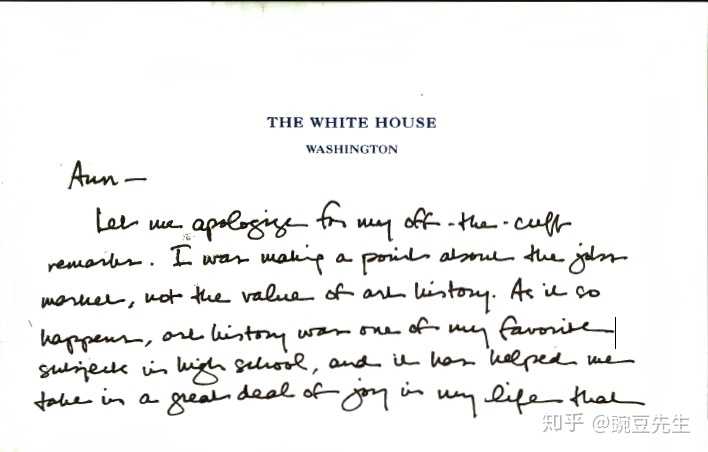 THE WHITE HOUSE
WASHINGTON
Ann —
Let me apologize for my off-the-cuff
remarks. I was making a point about the jobs
market, not the value of art history. As it so
happens, art history was one of my favorite
subjects in high school, and it has helped me
take in a great deal of joy in my life that
知乎 @豌豆先生